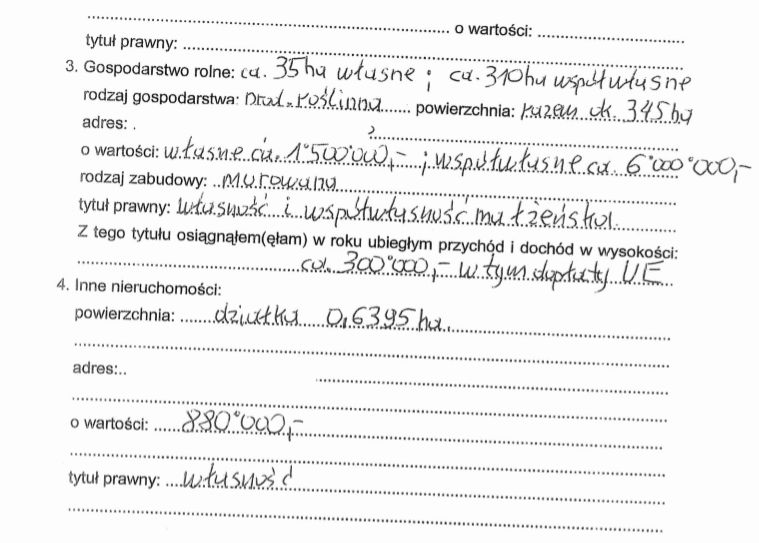 o wartości:
tytuł prawny:
3. Gospodarstwo rolne: ca. 35 ha własne ; ca. 310 ha współwłasne
rodzaj gospodarstwa: prod. roślinna powierzchnia: razem ok. 345 ha
adres: .
o wartości: własne ca. 1'500'000,- ; współwłasne ca. 6'000'000,-
rodzaj zabudowy: murowana
tytuł prawny: własność i współwłasność małżeńska.
Z tego tytułu osiągnąłem(ęłam) w roku ubiegłym przychód i dochód w wysokości:
ca. 300'000,- w tym dopłaty UE
4. Inne nieruchomości:
powierzchnia: działka 0,6395 ha.
adres:..
o wartości: 880'000,-
tytuł prawny: własność